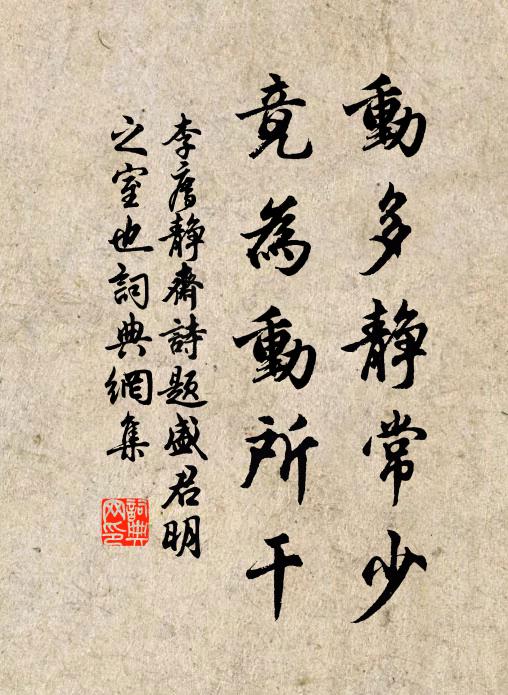 動多静常少
竟為動所干
李廌静齋詩題盛君明
之室也詞典網集
詞典
网印